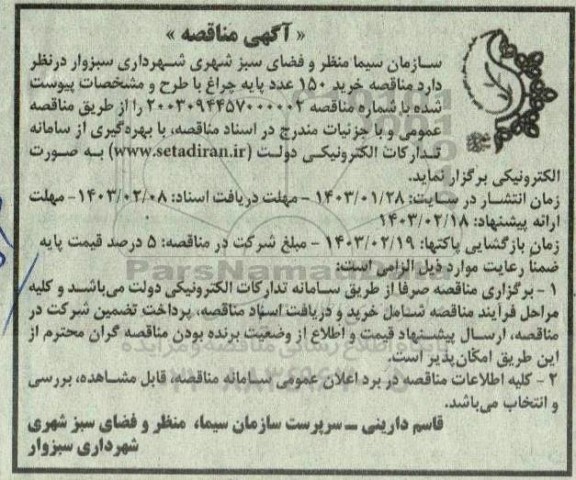 « آگهی مناقصه »
سازمان سیما منظر و فضای سبز شهری شهرداری سبزوار درنظر
دارد مناقصه خرید ۱۵۰ عدد پایه چراغ با طرح و مشخصات پیوست
شده با شماره مناقصه ۲۰۰۳۰۹۴۴۵۷۰۰۰۰۰۲ را از طریق مناقصه
عمومی و با جزئیات مندرج در اسناد مناقصه، با بهره‌گیری از سامانه
تدارکات الکترونیکی دولت (www.setadiran.ir) به صورت
الکترونیکی برگزار نماید.
زمان انتشار در سایت: ۱۴۰۳/۰۱/۲۸ - مهلت دریافت اسناد: ۱۴۰۳/۰۲/۰۸ - مهلت
ارائه پیشنهاد: ۱۴۰۳/۰۲/۱۸
زمان بازگشایی پاکتها: ۱۴۰۳/۰۲/۱۹ - مبلغ شرکت در مناقصه: ۵ درصد قیمت پایه
ضمنا رعایت موارد ذیل الزامی است:
۱ - برگزاری مناقصه صرفا از طریق سامانه تدارکات الکترونیکی دولت می‌باشد و کلیه
مراحل فرآیند مناقصه شامل خرید و دریافت اسناد مناقصه، پرداخت تضمین شرکت در
مناقصه، ارسال پیشنهاد قیمت و اطلاع از وضعیت برنده بودن مناقصه گران محترم از
این طریق امکان‌پذیر است.
۲ - کلیه اطلاعات مناقصه در برد اعلان عمومی سامانه مناقصه، قابل مشاهده، بررسی
و انتخاب می‌باشد.
قاسم دارینی ـ سرپرست سازمان سیما، منظر و فضای سبز شهری
شهرداری سبزوار
ParsNamadData